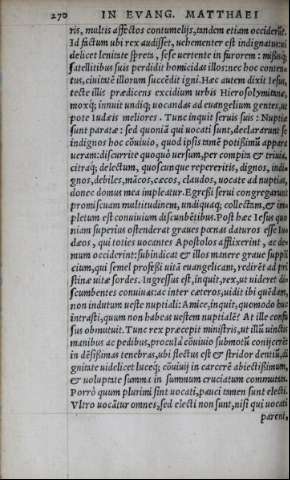 270 IN EVANG. MATTHAEI
ris, multis affectos contumelijs, tandem etiam occiderūt.
Id factum ubi rex audisset, uehementer est indignatus: ui
delicet lenitate spreta, sese uertente in furorem: missisq́;
satellitibus suis perdidit homicidas illos: nec hoc conten-
tus, ciuitatē illorum succēdit igni. Hæc autem dixit Iesus,
tecte illis prædicens excidium urbis Hierosolymitanæ,
moxq́; innuit undiq; uocandas ad euangelium gentes, ut
pote Iudæis meliores. Tunc inquit seruis suis: Nuptiæ
sunt paratæ: sed quoniā qui uocati sunt, declararunt se
indignos hoc cōuiuio, quod ipsis omnē potißimū appara
ueram: discurrite quoquò uersum, per compita & triuia,
citraq́; delectum, quoscunque repereritis, dignos, indi-
gnos, debiles, mācos, cæcos, claudos, uocate ad nuptias,
donec domus mea impleatur. Egressi serui congregarunt
promiscuam multitudinem, undiquaq; collectam, & im-
pletum est conuiuium discumbētibus. Post hæc Iesus quo
niam superius ostenderat graues pœnas daturos esse Iu-
dæos, qui toties uocantes Apostolos afflixerint, ac de-
mum occiderint: subindicat & illos manere graue suppli
cium, qui semel professi uitā euangelicam, redirēt ad pri
stinæ uitæ sordes. Ingressus est, inquit, rex, ut uideret di-
scumbentes conuiuas: ac inter cæteros, uidit ibi quēdam,
non indutum ueste nuptiali: Amice, inquit, quomodo huc
intrasti, quum non habeas uestem nuptialē? At ille confu
sus obmutuit. Tunc rex præcepit ministris, ut illū uinctis
manibus ac pedibus, procul à cōuiuio submotū conijcerēt
in dēsissimas tenebras, ubi fletus est & stridor dentiū, di
gnitate uidelicet luceq́; cōuiuij in carcerē abiectissimum,
& uoluptate summa in summum cruciatum commutatis.
Porrò quum plurimi sint uocati, pauci tamen sunt electi.
Vltro uocātur omnes, sed electi non sunt, nisi qui uocati
parent,